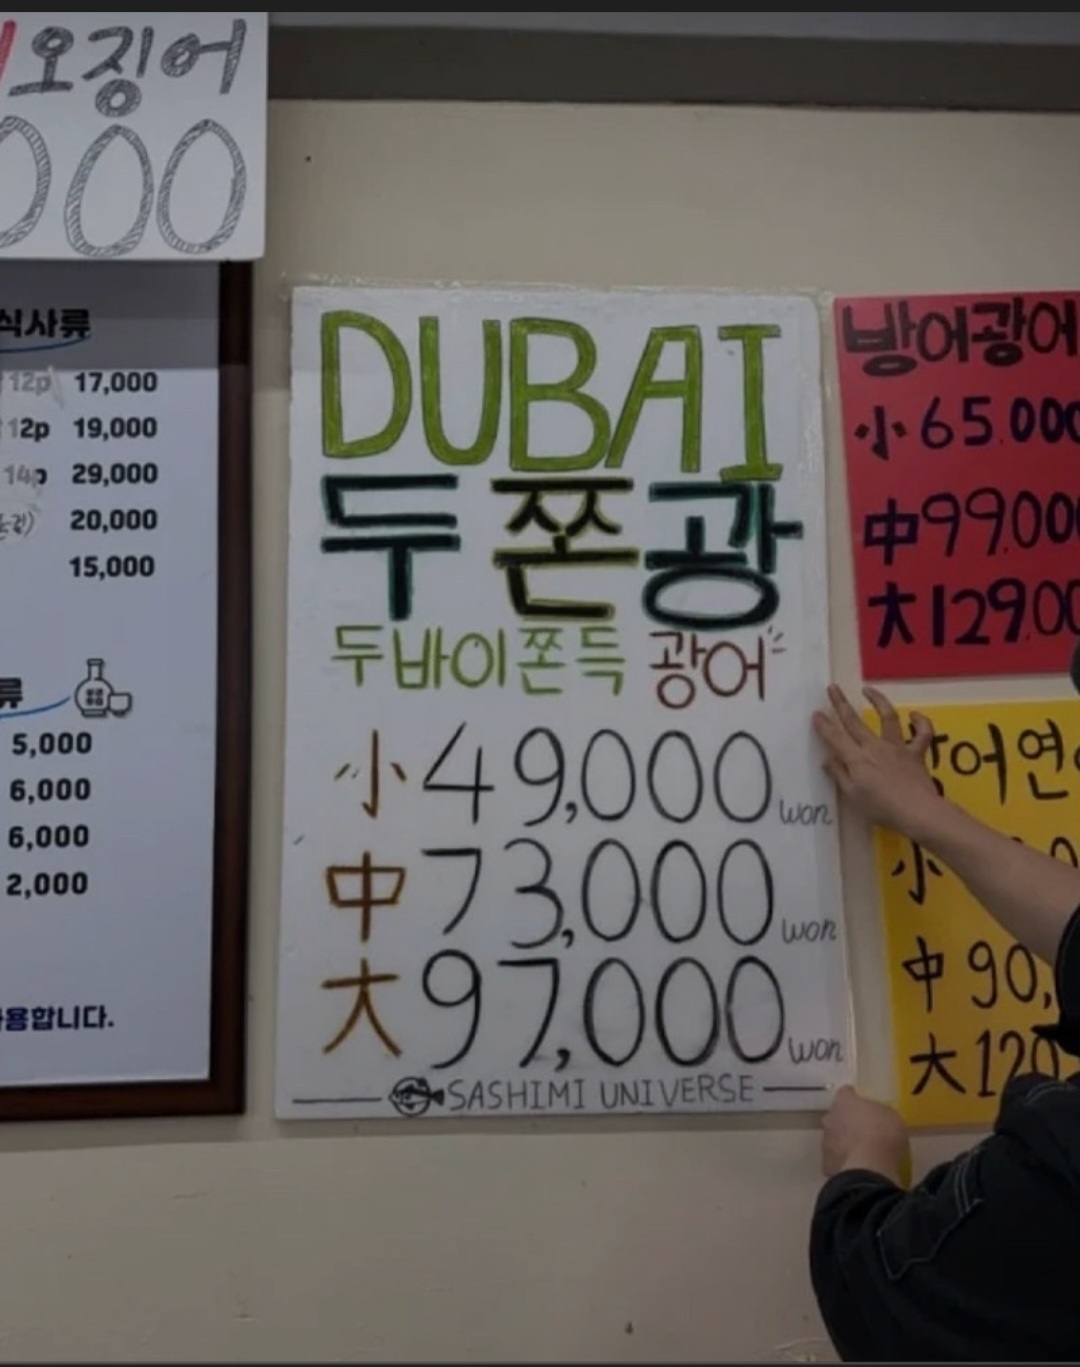 오징어
000
식사류
12p 17,000
12p 19,000
14p 29,000
20,000
15,000
류
5,000
6,000
6,000
2,000
용합니다.
DUBAI
두쫀광
두바이쫀득 광어
小 49,000 won
中 73,000 won
大 97,000 won
SASHIMI UNIVERSE
방어광어
小 65.000
中 99.00
大 129.00
어연
小
中 90,
大 120